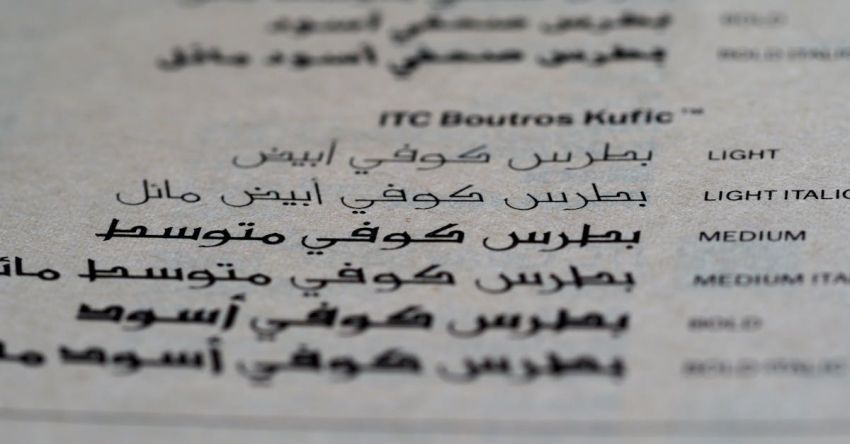 بطرس صحفي أسود BOLD
بطرس صحفي أسود مائل BOLD ITALIC
ITC Boutros Kufic ™
بطرس كوفي أبيض LIGHT
بطرس كوفي أبيض مائل LIGHT ITALIC
بطرس كوفي متوسط MEDIUM
بطرس كوفي متوسط مائل MEDIUM ITA
بطرس كوفي أسود BOLD
بطرس كوفي أسود ما BOLD ITALIC